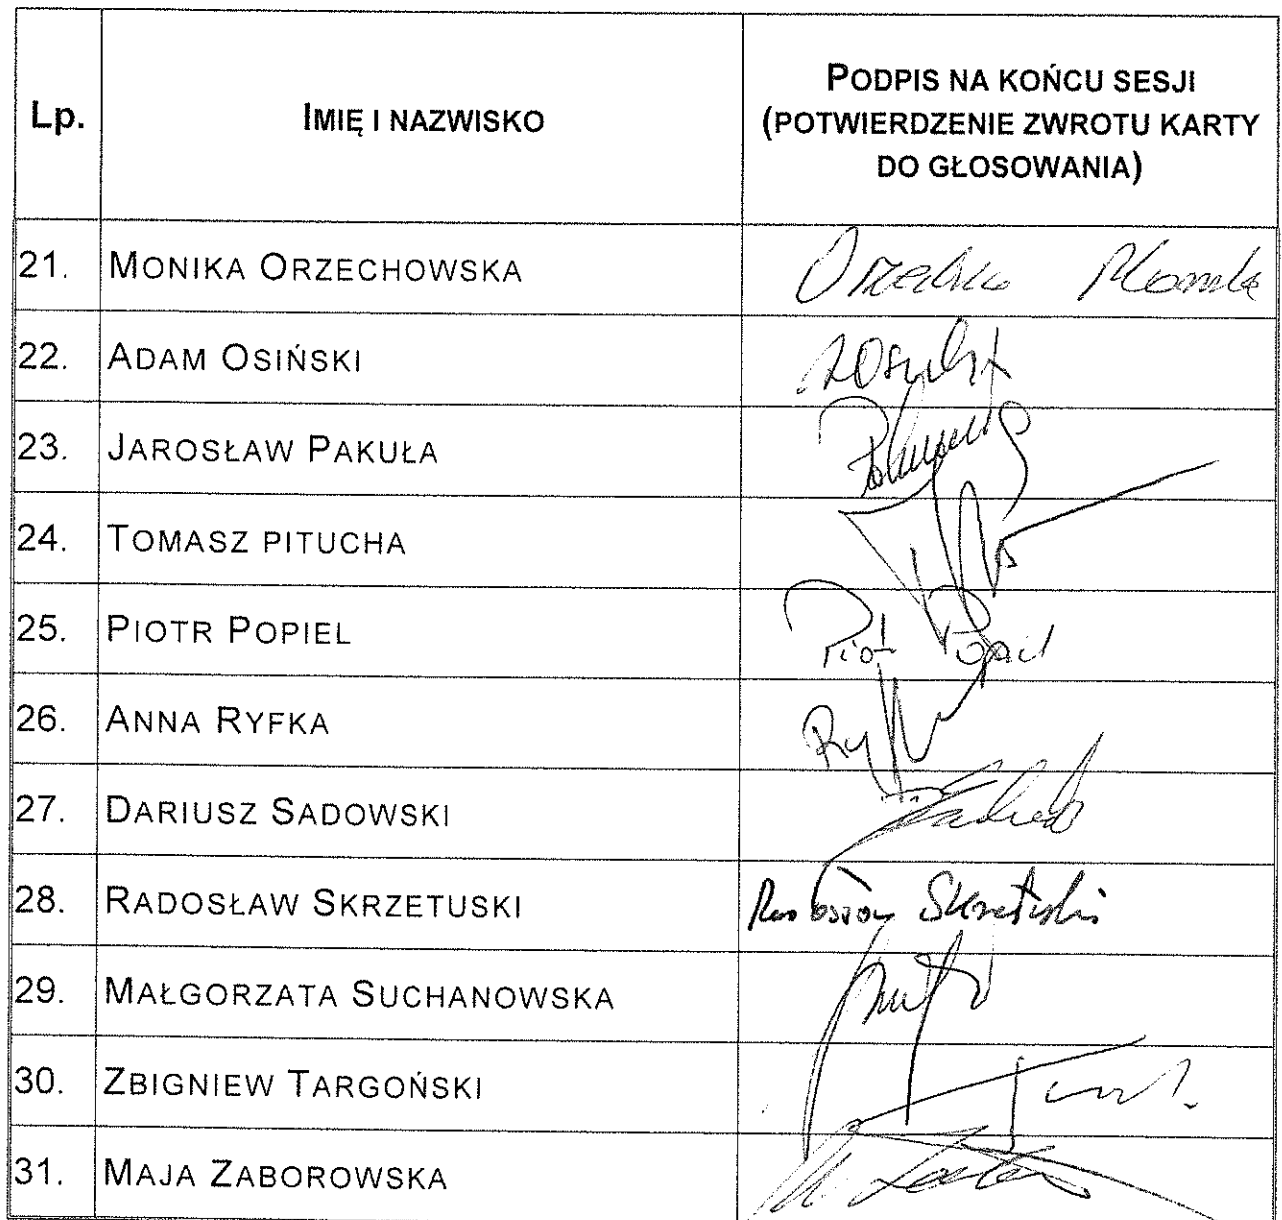 Lp.
IMIĘ I NAZWISKO
PODPIS NA KOŃCU SESJI
(POTWIERDZENIE ZWROTU KARTY
DO GŁOSOWANIA)
21. MONIKA ORZECHOWSKA
22. ADAM OSIŃSKI
23. JAROSŁAW PAKUŁA
24. TOMASZ PITUCHA
25. PIOTR POPIEL Piotr Popiel
26. ANNA RYFKA
27. DARIUSZ SADOWSKI
28. RADOSŁAW SKRZETUSKI Radosław Skrzetuski
29. MAŁGORZATA SUCHANOWSKA
30. ZBIGNIEW TARGOŃSKI
31. MAJA ZABOROWSKA